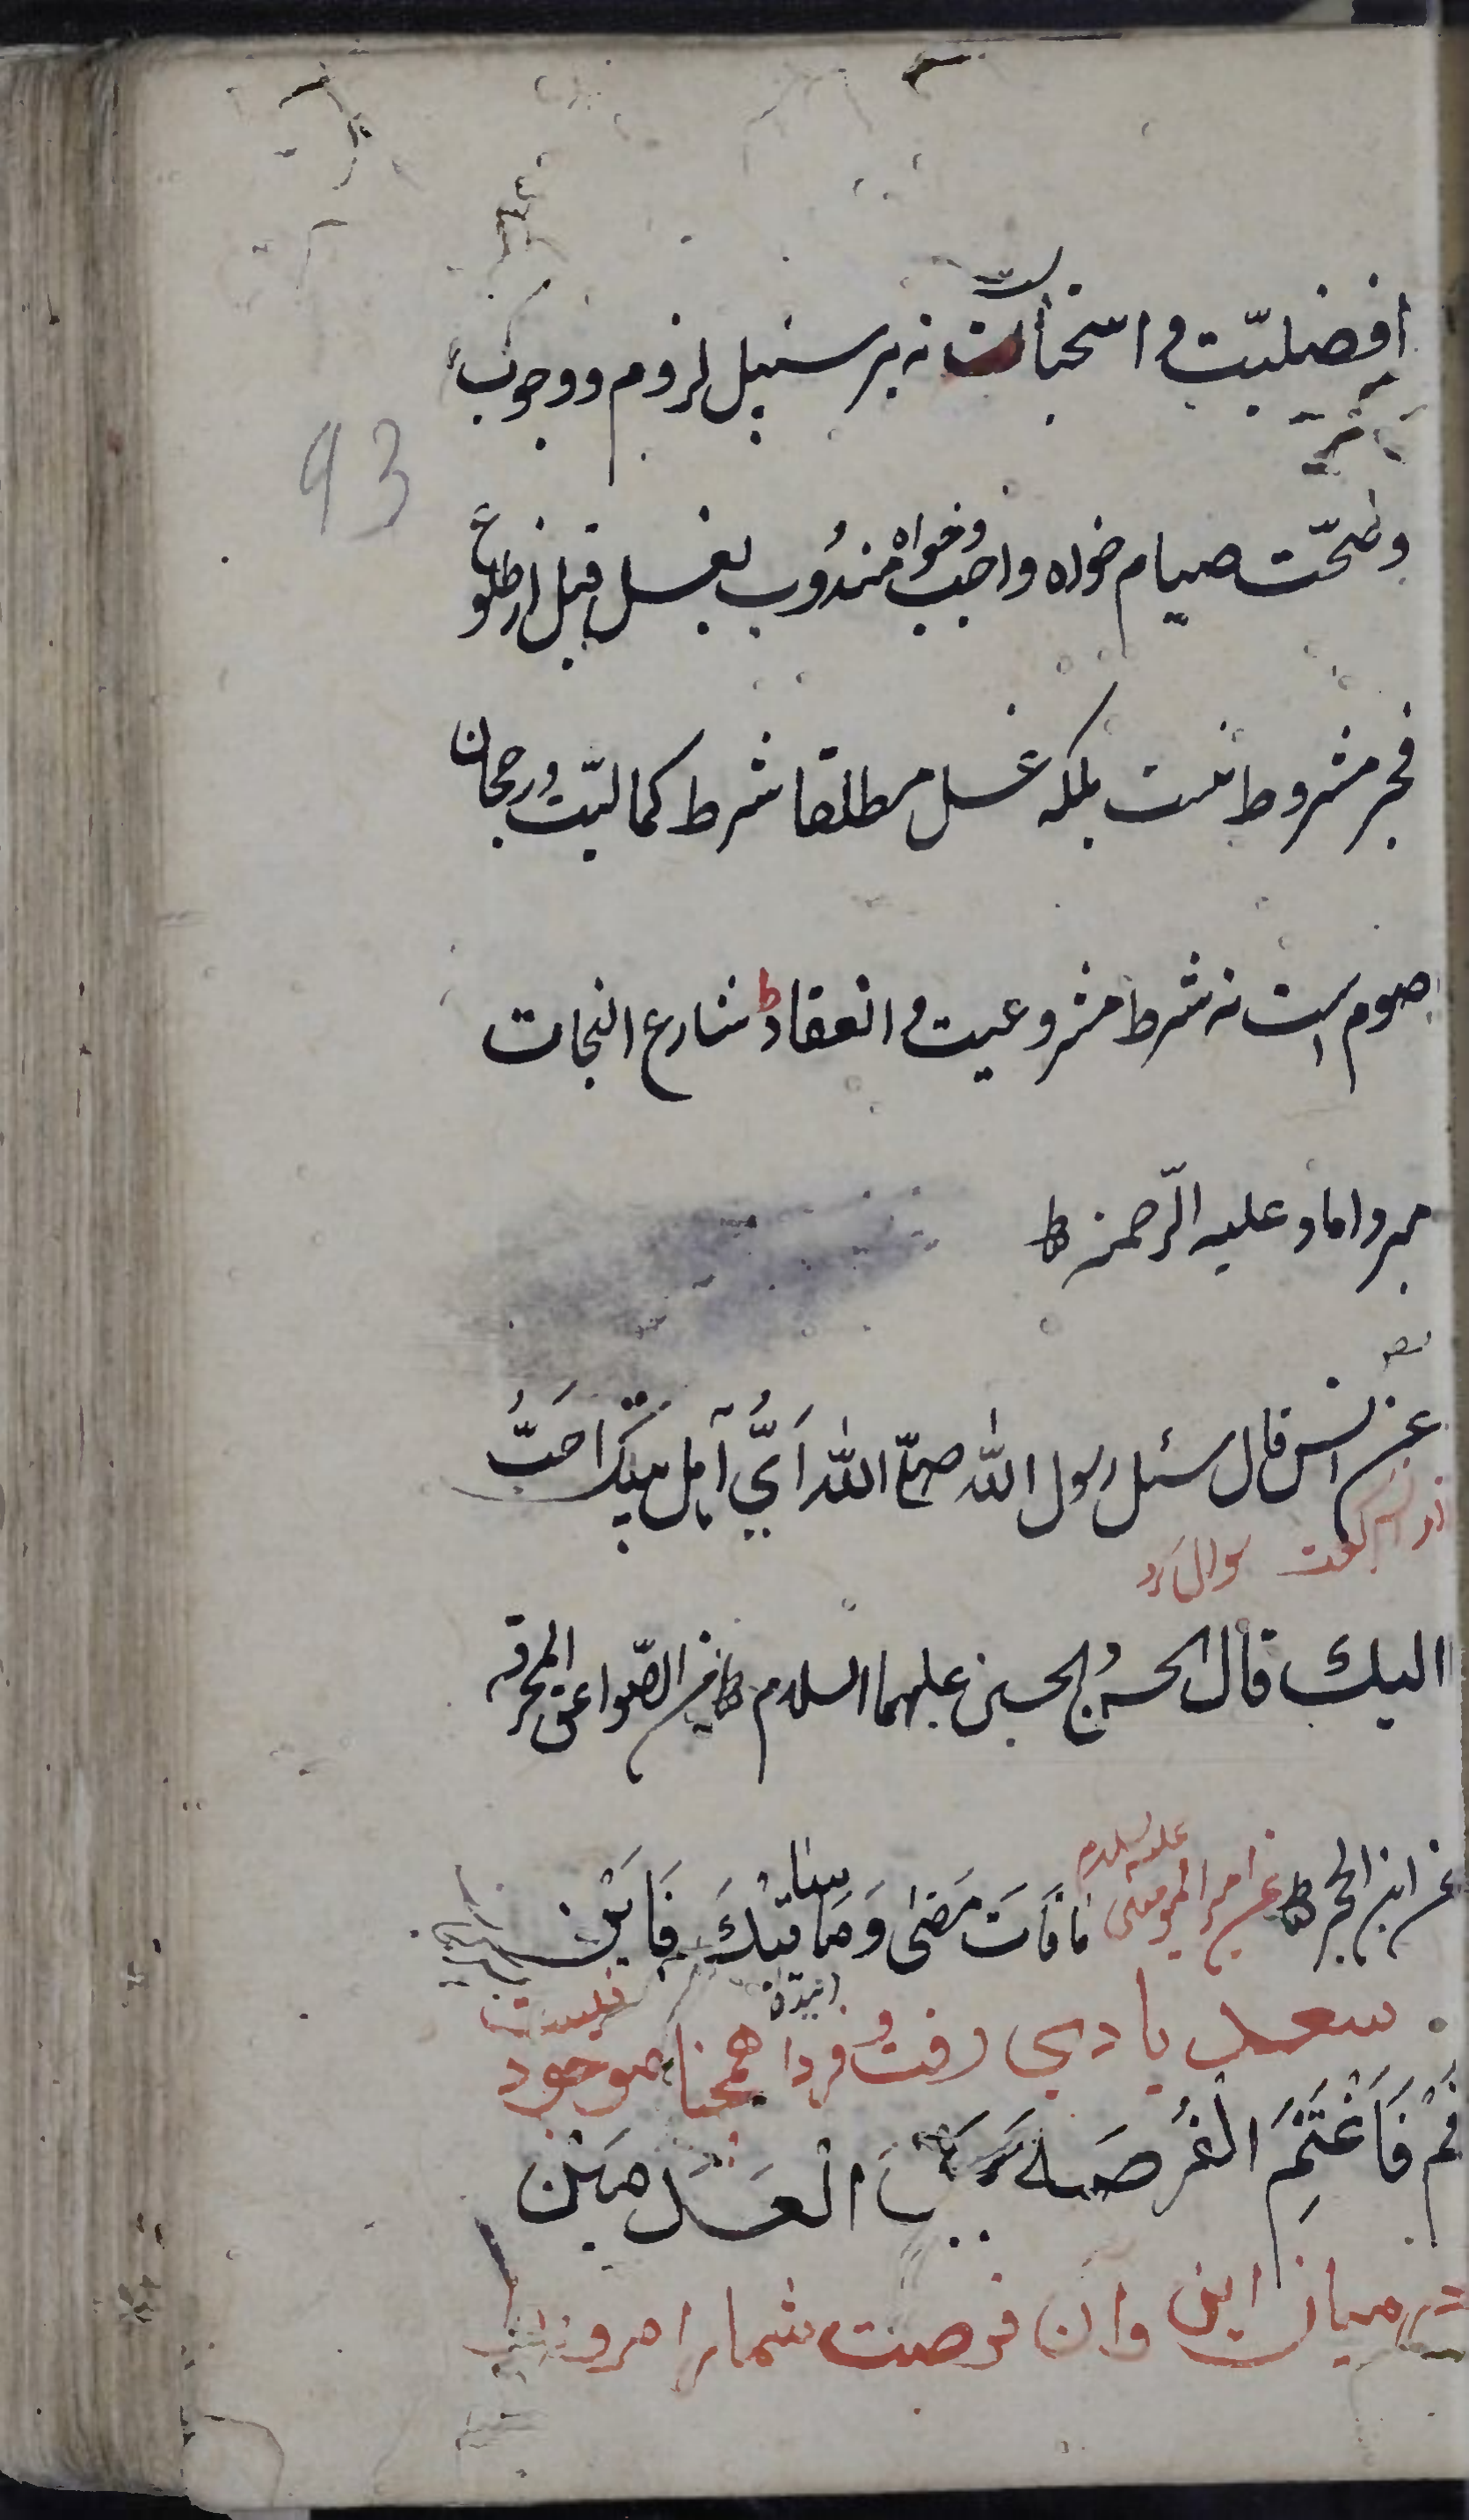 افضلیّت و استحبابست نه بر سبیل لزوم و وجوب
93
و صحّت صیام خواه واجب و خواه مندُوب بغسل قبل از طلوع
فجر مشروط نیست بلکه غسل مطلقا شرط کمالیّت و رجحان
صوم است نه شرط مشروعیت و انعقاد ط شارع النجات
میر داماد علیه الرّحمه ط
عن انس قال سئل رسول الله صلّی الله اَیُّ اَهل بیتک احَبُّ
انس گفت سوال کرد
الیک قال الحسن و الحسین علیهما السلام ط من الصّواعق المحرقه
عن ابن الحجر ط عن امیر المومنین علیه السلام مَا فَاتَ مَضٰی وَ مَا سیَاتیْكَ فَاَیْنَ
سعدیا دی رفت و فردا همچنان موجود نیست
قُمْ فَاغْتَنِمِ الْفُرصَه بَیْنَ الْعَدَمَیْن
در میان این و آن فرصت شمار امروز را